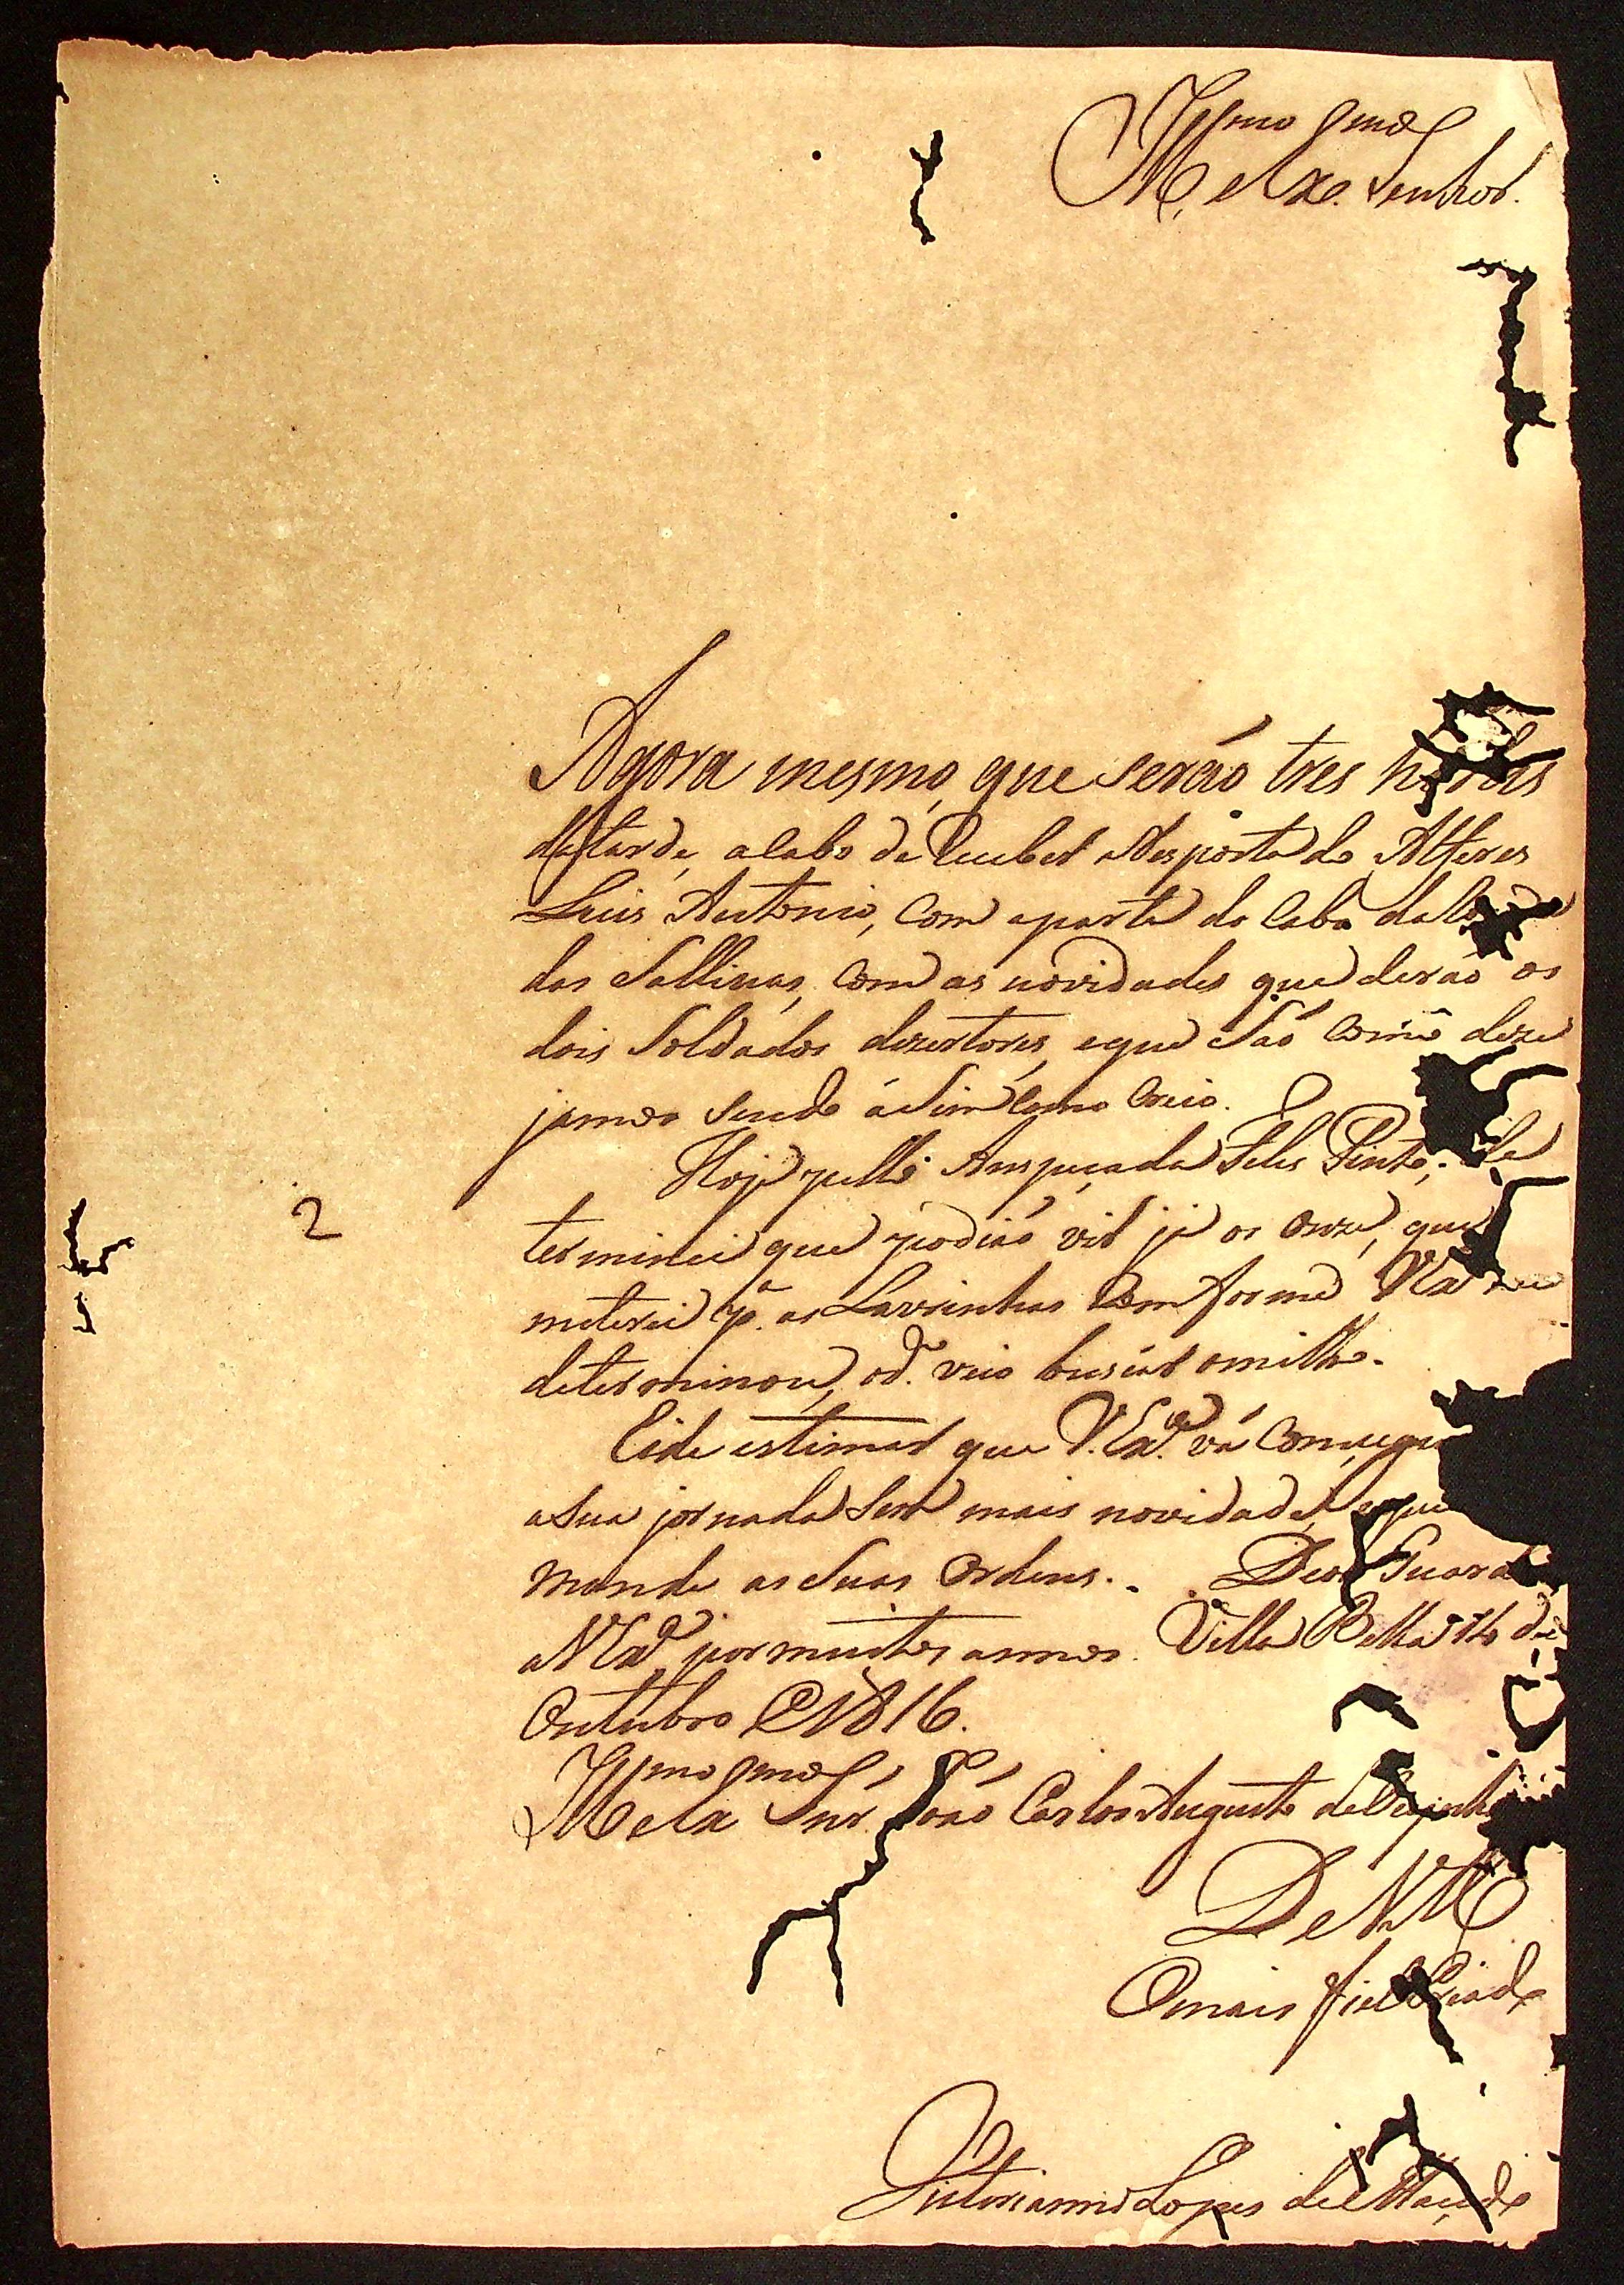 Illmo Exmo Senhor.
Agora mesmo, que serão tres horas
da tarde, acabo de receber a resposta do Alferes
Luis Antonio, com a parte do Cabo da
das Sallinas, com as novidades que derão os
dois Soldados dezertores, e que São Como deze
jamos Sendo áSim Como Creio.
Hoje pello Anspeçada Teles Pinto, de
terminei que podião vir já os onze, que
meterei pª. as Lavrinhas Comforme VEx.ª me
determinou, oq̃. veio buscar o milho.
Eide estimar que V.Exª. vá
a Sua jornada Sem mais novidade, e que
mande as Suas Ordens. Deos Guarde
a VEx.ª por muitos annos. Villa Bella 16 de
Outubro de 1816.
Illmo Exmo Snr. João Carlos Augusto de Oeynhausen
De V.Ex.ª
O mais fiel Criado
2
Victoriano Lopes de Macedo